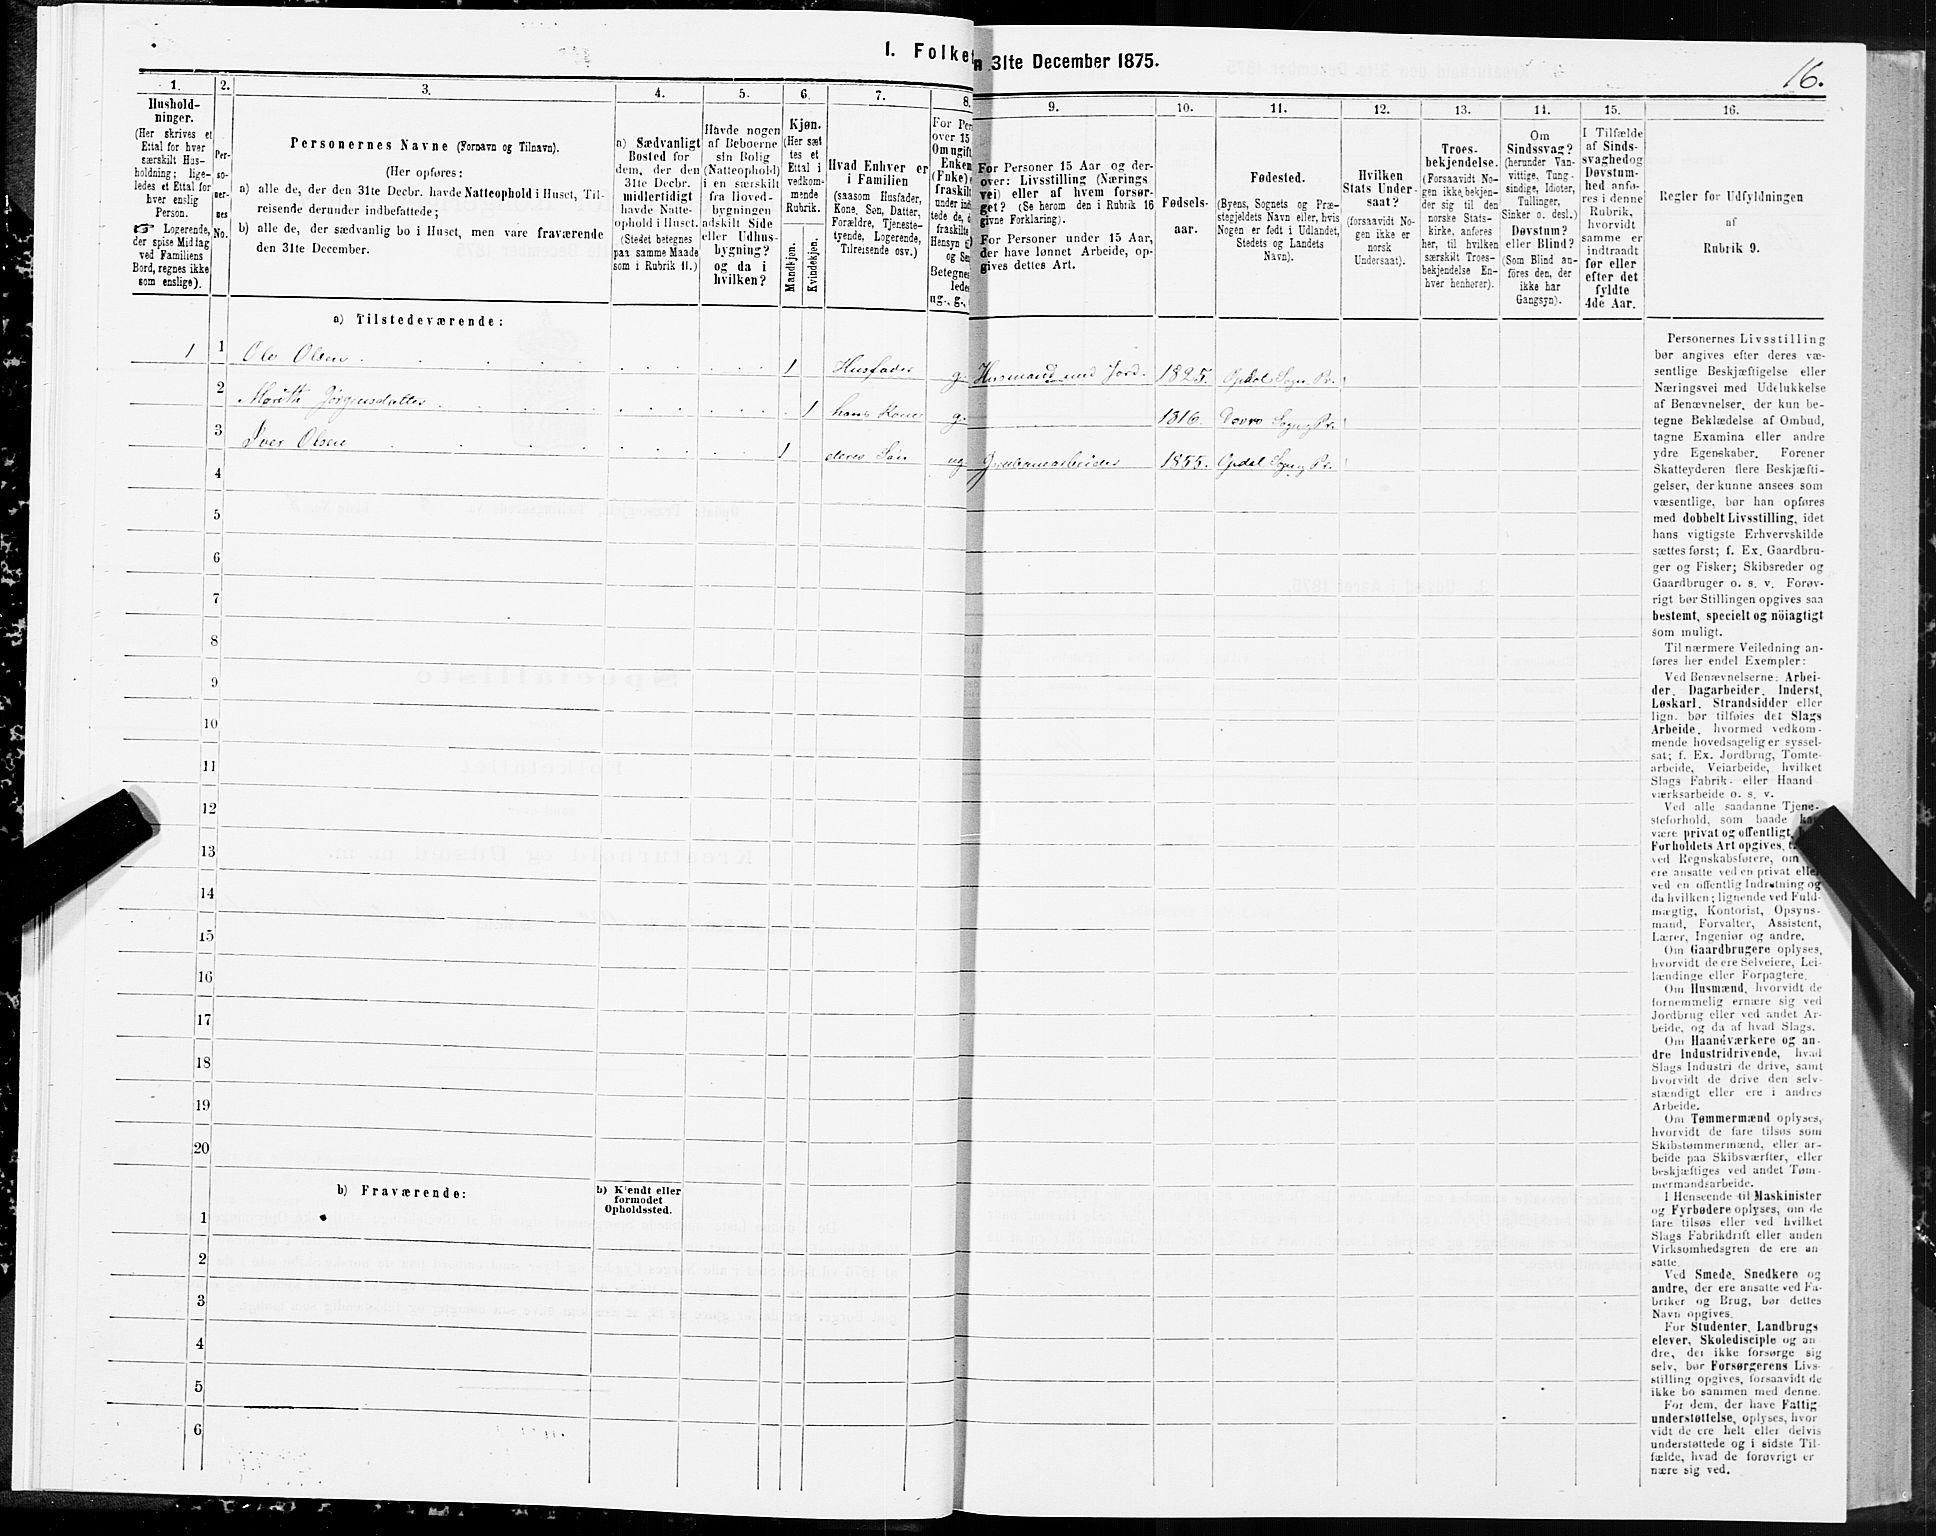 I. Folket
n 31te December 1875.
16.
1.
Hushold-
ninger.
(Her skrives et
Ettal for hver
særskilt Hus-
holdning; lige-
ledes et Ettal for
hver enslig
Person.
☞ Logerende,
der spise Middag
ved Familiens
Bord, regnes ikke
som enslige).
2.
Per-
so-
ner-
nes
No.
3.
Personernes Navne (Fornavn og Tilnavn).
(Her opføres:
a) alle de, der den 31te Decbr. havde Natteophold i Huset, Til-
reisende derunder indbefattede;
b) alle de, der sædvanlig bo i Huset, men vare fraværende
den 31te December.
4.
a) Sædvanligt
Bosted for
dem, der den
31te Decbr.
midlertidigt
havde Natte-
ophold i Huset.
(Stedet betegnes
paa samme Maade
som i Rubrik 11.)
5.
Havde nogen
af Beboerne
sin Bolig
(Natteophold)
i en særskilt
fra Hoved-
bygningen
adskilt Side
eller Udhus-
bygning?
og da i
hvilken?
6.
Kjøn.
(Her sæt
tes et
Ettal i
vedkom-
mende
Rubrik.
Mandkjøn.
Kvindekjøn.
7.
Hvad Enhver er
i Familien
(saasom Husfader,
Kone, Søn, Datter,
Forældre, Tjeneste-
tyende, Logerende,
Tilreisende osv.)
8.
For Per
over 15
Om ugift
Enken
(Fnke)
fraskilt
under ind
tede de,
fraskilte
Hensyn
og Se
Betegnes
lede
ug., g.,
9.
For Personer 15 Aar og der-
over: Livsstilling (Nærings
vei) eller af hvem forsør-
get? (Se herom den i Rubrik 16
givne Forklaring).
For Personer under 15 Aar,
der have lønnet Arbeide, op-
gives dettes Art.
10.
Fødsels-
aar.
11.
Fødested.
(Byens, Sognets og Præ-
stegjeldets Navn eller, hvis
Nogen er født i Udlandet,
Stedets og Landets
Navn).
12.
Hvilken
Stats Under-
saat?
(forsaavidt No-
gen ikke er
norsk
Undersaat).
13.
Troes-
bekjendelse.
(Forsaavidt No-
gen ikke bekjen-
der sig til den
norske Stats-
kirke, anføres
her, til hvilken
særskilt Troes-
bekjendelse En-
hver henhører).
14.
Om
Sindssvag?
(herunder Van-
vittige, Tung-
sindige, Idioter,
Tullinger,
Sinker o. desl.)
Døvstum?
eller Blind?
(Som Blind an-
føres den, der
ikke har
Gangsyn).
15.
I Tilfælde
af Sinds-
svaghedog
Døvstum-
hed anfø-
res i denne
Rubrik,
hvorvidt
samme er
indtraadt
før eller
efter det
fyldte
4de Aar.
16.
Regler for Udfyldningen
af
Rubrik 9.
a) Tilstedeværende:
1 1 Ole Olsen 1 Husfader g. Husmand med Jord. 1825. Opdal Sogn Pr.
2 Marith Jørgensdatter 1 hans Kone g. 1816. Dovre Sogn Pr.
3 Iver Olsen 1 deres Søn ug Grubearbeider 1855. Opdal Sogn Pr.
4
5
6
7
8
9
10
11
12
13
14
15
16
17
18
19
20
b) Fraværende:
b) Kjendt eller
formodet
Opholdssted.
1
2
3
4
5
6
Personernes Livsstilling
bør angives efter deres væ-
sentlige Beskjæftigelse eller
Næringsvei med Udelukkelse
af Benævnelser, der kun be-
tegne Beklædelse af Ombud,
tagne Examina eller andre
ydre Egenskaber. Forener
Skatteyderen flere Beskjæfti-
gelser, der kunne ansees som
væsentlige, bør han opføres
med dobbelt Livsstilling, idet
hans vigtigste Erhvervskilde
sættes først; f. Ex. Gaardbru-
ger og Fisker; Skibsreder og
Gaardbruger o. s. v. Forøv-
rigt bør Stillingen opgives saa
bestemt, specielt og nöiagtigt
som muligt.
Til nærmere Veiledning an-
føres her endel Exempler:
Ved Benævnelserne: Arbei-
der, Dagarbeider, Inderst,
Løskarl, Strandsidder eller
lign. bør tilføies det Slags
Arbeide, hvormed vedkom-
mende hovedsagelig er syssel-
sat; f. Ex. Jordbrug, Tomte-
arbeide, Veiarbeide, hvilket
Slags Fabrik- eller Haand
værksarbeide o. s. v.
Ved alle saadanne Tjene-
steforhold, som baade kan
være privat og offentligt,
Forholdets Art opgives,
ved Regnskabsførere, om
ere ansatte ved en privat eller
ved en offentlig Indretning og
da hvilken; lignende ved Fuld-
mægtig, Kontorist, Opsyns-
mand, Forvalter, Assistent,
Lærer, Ingeniør og andre.
Om Gaardbrugere oplyses,
hvorvidt de ere Selveiere, Lei-
lændinge eller Forpagtere.
Om Husmænd, hvorvidt de
fornemmelig ernære sig ved
Jordbrug eller ved andet Ar-
beide, og da af hvad Slags.
Om Haandværkere og an-
dre Industridrivende, hvad
Slags Industri de drive, samt
hvorvidt de drive den selv-
stændigt eller ere i andres
Arbeide.
Om Tømmermænd oplyses,
hvorvidt de fare tilsøs som
Skibstømmermænd, eller ar-
beide paa Skibsværfter, eller
beskjæftiges ved andet Tøm-
mermandsarbeide.
I Henseende til Maskinister
og Fyrbødere oplyses, om de
fare tilsøs eller ved hvilket
Slags Fabrikdrift eller anden
Virksomhedsgren de ere an
satte.
Ved Smede, Snedkere og
andre, der ere ansatte ved Fa-
briker og Brug, bør dettes
Navn opgives.
For Studenter, Landbrugs
elever, Skoledisciple og an
dre, der ikke forsørge sig
selv, bør Forsørgerens Livs-
stilling opgives, forsaavidt de
ikke bo sammen med denne.
For dem, der have Fattig
understøttelse, oplyses, hvor
vidt de ere helt eller delvis
understøttede og i sidste Til-
fælde, hvad de forøvrigt er
nære sig ved.